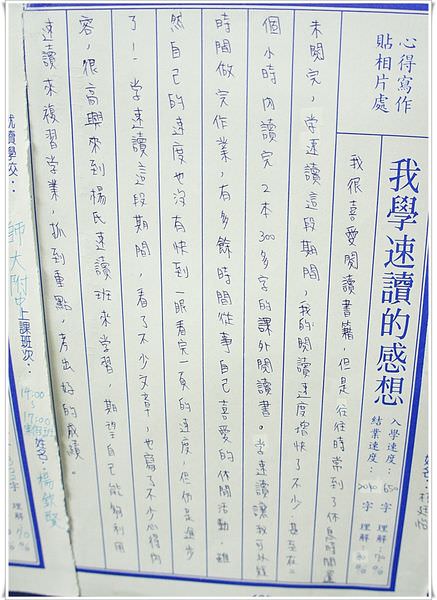 心得寫作
貼相片處
我學速讀的感想
入學速度：650字 理解：70%
結業速度：2040字 理解：80%
我很喜愛閱讀書籍，但是往往時常到了休息時間還
未閱完，學速讀這段期間，我的閱讀速度增快了不少，甚至在二
個小時內讀完2本300多字的課外閱讀書。學速讀讓我可以縮
時間做完作業，有多餘時間從事自己喜愛的休閒活動，雖
然自己的速度也沒有快到一眼看完一頁的速度，但仍是進步
了！學速讀這段期間，看了不少文章，也寫了不少心得內
容，很高興來到楊氏速讀班來學習，期望自己能夠利用
速讀來複習學業，抓到重點，考出好的成績。
就讀學校：師大附中
上課班次：14:00~17:00
姓名：楊